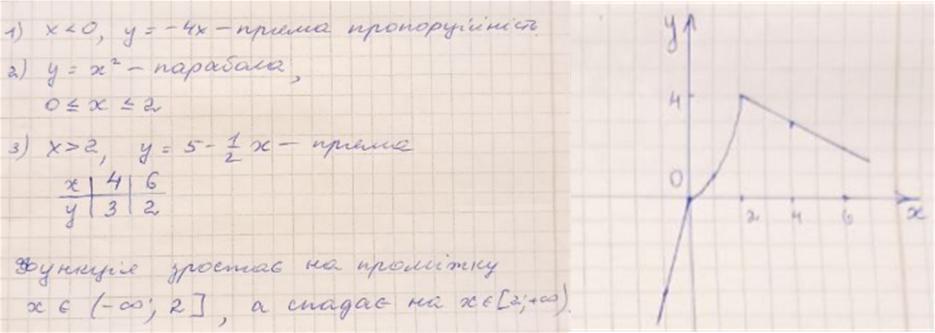 1) x < 0, y = -4x – пряма пропорційність
2) y = x² – парабола,
0 ≤ x ≤ 2
3) x > 2, y = 5 - 1/2 x – пряма
x | 4 | 6
y | 3 | 2
Функція зростає на проміжку
x ∈ (-∞; 2], а спадає на x ∈ [2; +∞).
y
4
0
2 4 6 x